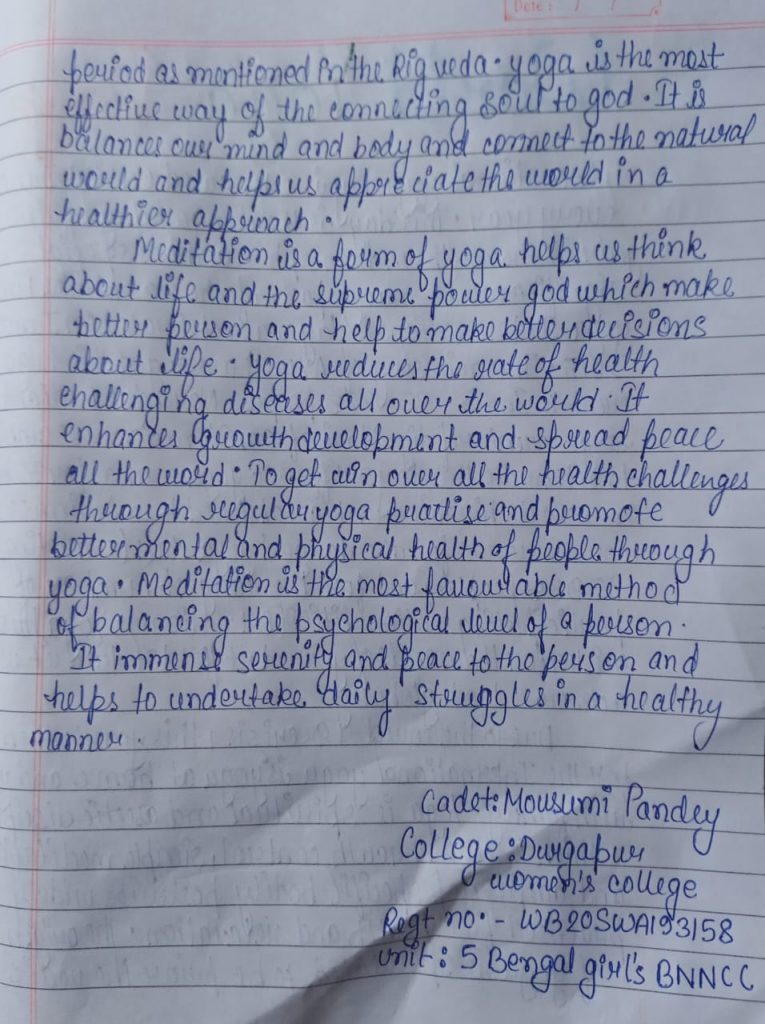 Date: / /
period as mentioned in the Rig veda. yoga is the most
effective way of the connecting soul to god. It is
balances our mind and body and connect to the natural
world and helps us appreciate the world in a
healthier approach.
Meditation is a form of yoga helps us think
about life and the supreme power god which make
better person and help to make better decisions
about life. yoga reduces the rate of health
challenging diseases all over the world. It
enhances growth development and spread peace
all the word. To get win over all the health challenges
through regular yoga practise and promote
better mental and physical health of people through
yoga. Meditation is the most favourable method
of balancing the psychological level of a person.
It immense serenity and peace to the person and
helps to undertake daily struggles in a healthy
manner.
Cadet: Mousumi Pandey
College: Durgapur
women's college
Regt no. - WB20SWA193158
unit: 5 Bengal girl's BNNCC